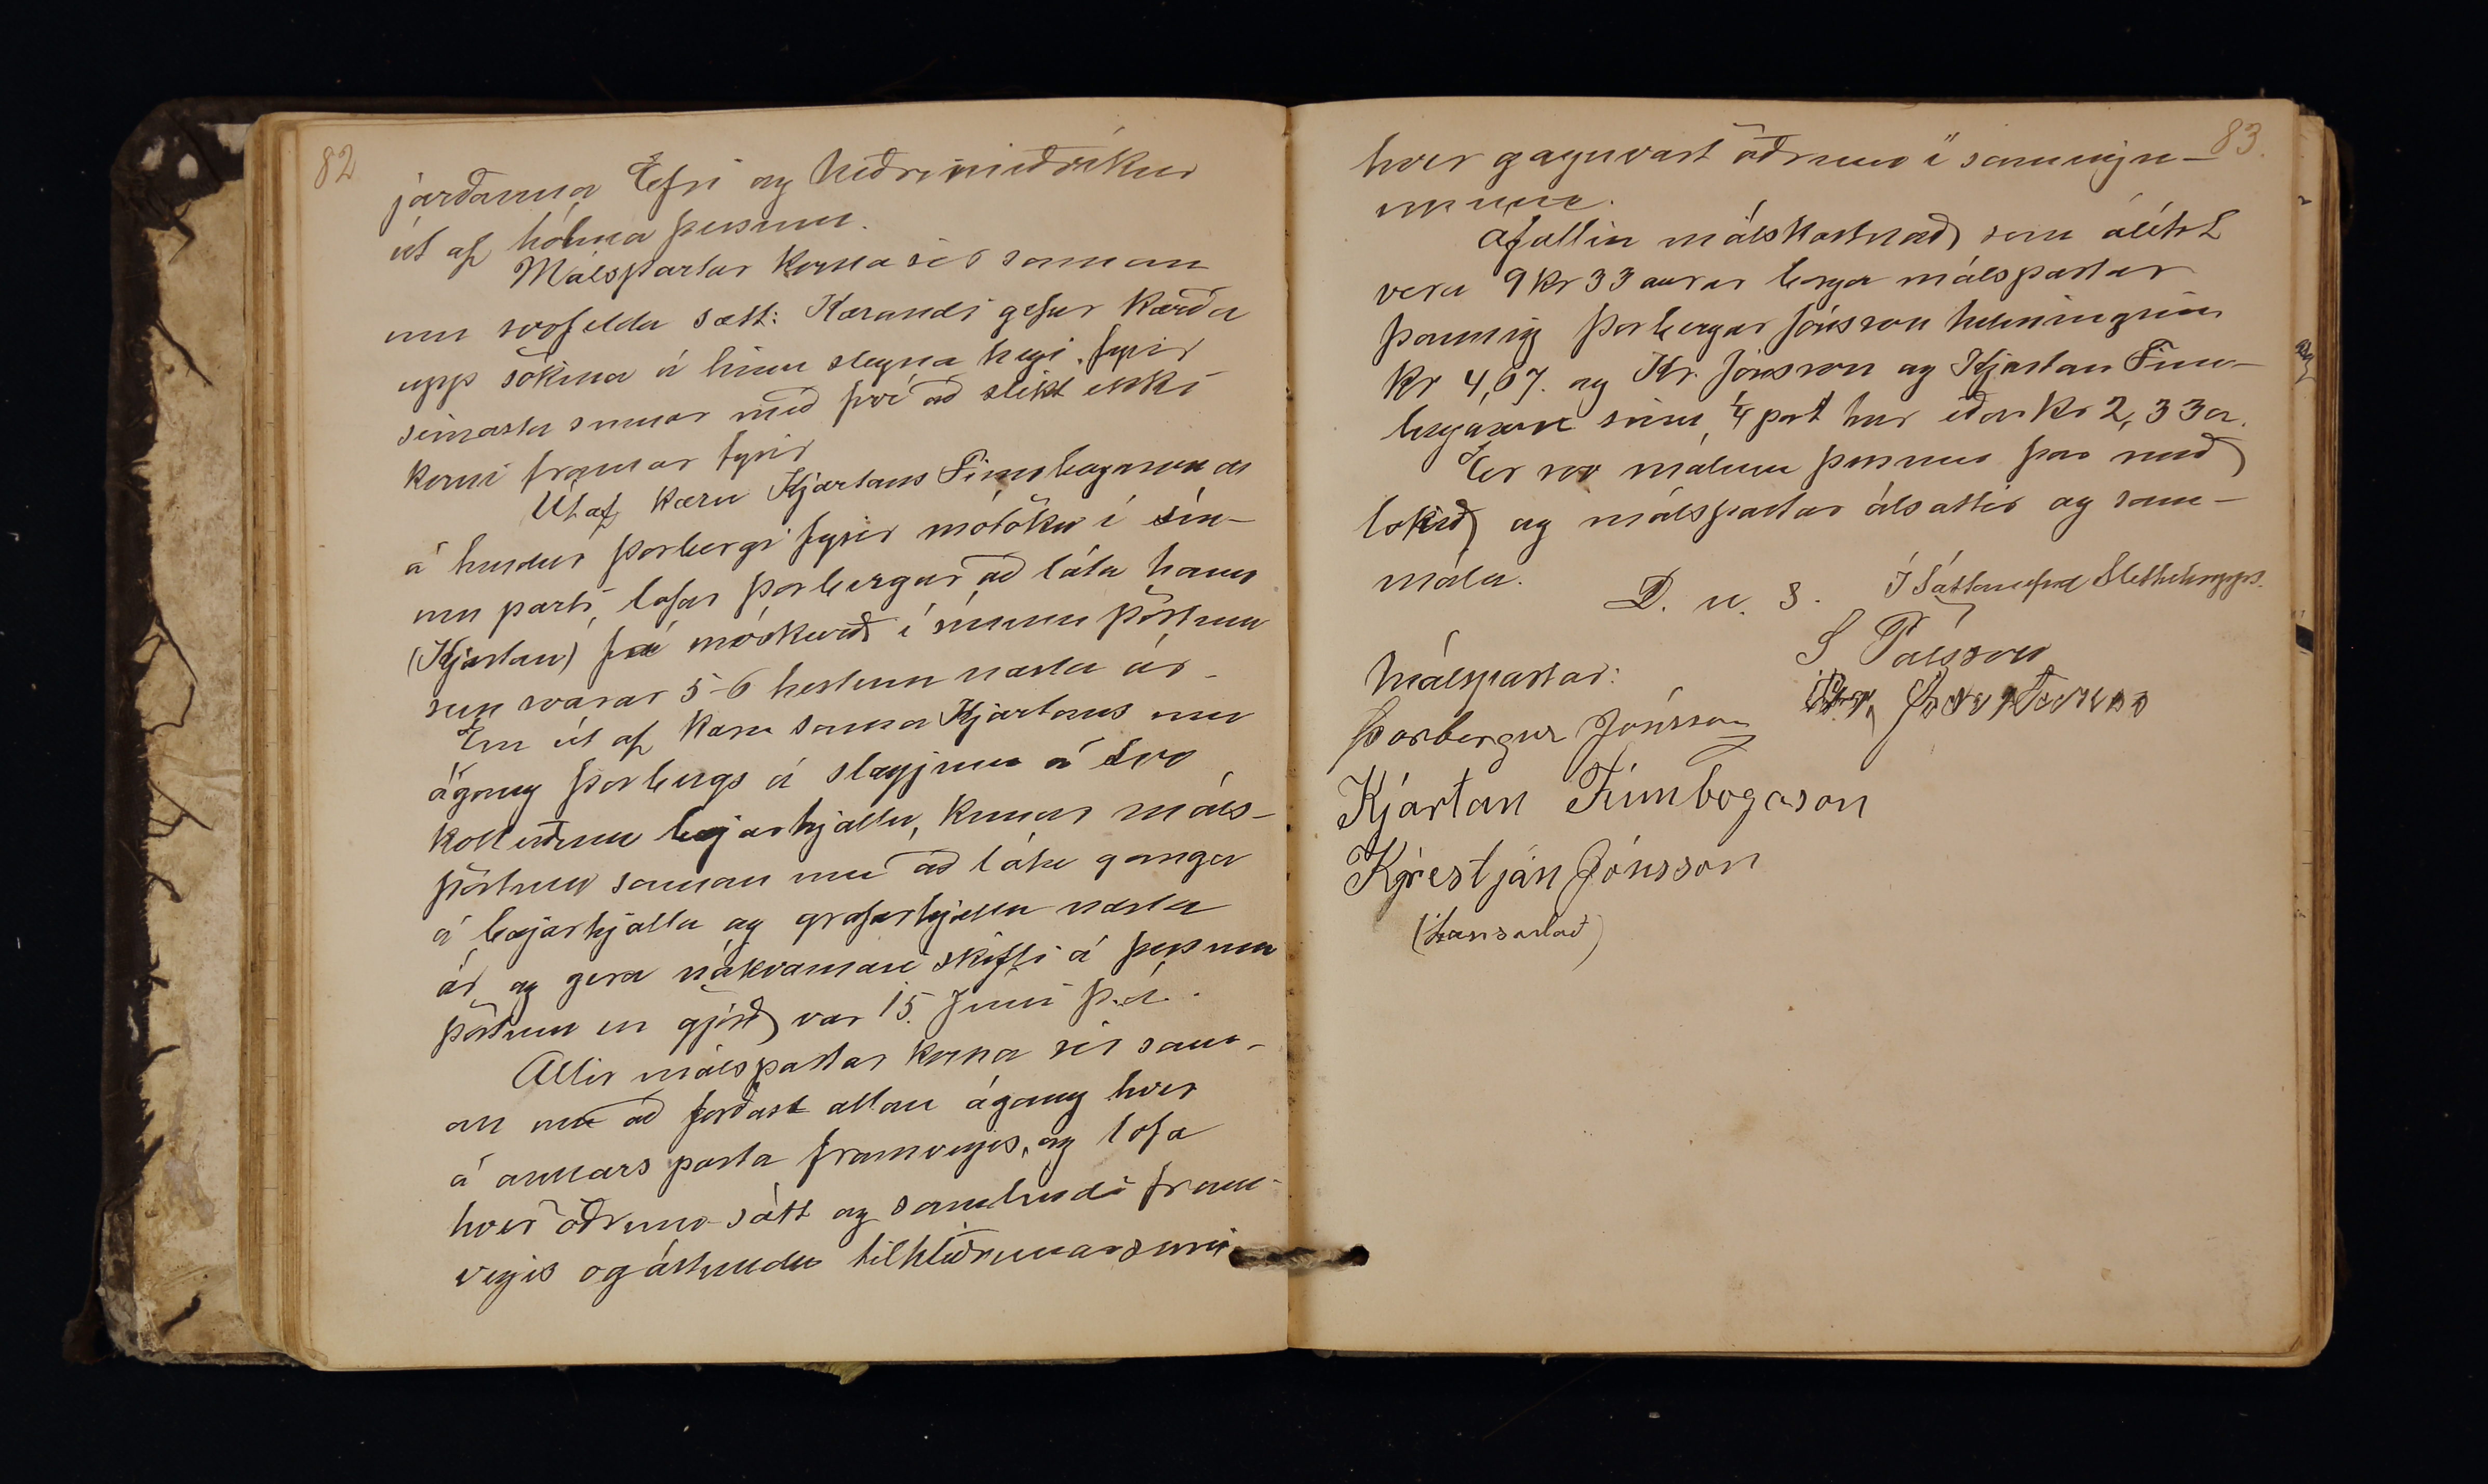 82
jarðanna Efri og Neðrimiðvíkur
út af hólma þessum.
Málspartar koma sér saman
um svofelda sætt: Kærandi gefur kærða
upp sökina á hinu slegna heyi fyrir
seinasta sumar með því að slíkt ekki
komi framar fyrir
Útaf kæru Kjartans Finnbogasonar
á hendur Þorbergi fyrir mótöku í sín-
um parti, lofar Þorbergur að láta hann
(Kjartan) fá móskurð í sínum pörtum
sem svarar 5-6 hestum næsta ár.
En út af kæru sama Kjartans um
ágang Þorbergs á slægjum á svo
kölluðum bæjarhjalla, kemur máls-
pörtum saman um að láta ganga
á bæjarhjalla og grafarhjalla næsta
ár og gera nákvæmari skifti á þessum
pörtum en gjörð var 15. Júní þ.á.
Allir málspartar koma sér sam-
an um að forðast allan ágang hver
á annars parta framvegis, og lofa
hver öðrum sátt og samlyndi fram-
vegis og ástundun tilhliðrunarsemi
83.
hver gagnvart öðrum í sameign-
unum.
Áfallin málskostnað sem álítst
vera 9 kr 33 aurar borga málspartar
þannig Þorbergur Jónsson helminginn
kr 4,67. og Kr. Jónsson og Kjartan Finn-
bogason sinn 1/4 part hver eða kr 2,33 a.
Er svo málum þessum þar með
lokið og málspartar alsáttir og sam-
mála.
D. u. s.
Í Sáttanefnd Sléttuhrepps.
S Pálsson
Málspartar:
Þorbergur Jónsson
Kjartan Finnbogason
Kristján Jónsson
(Handsalað)